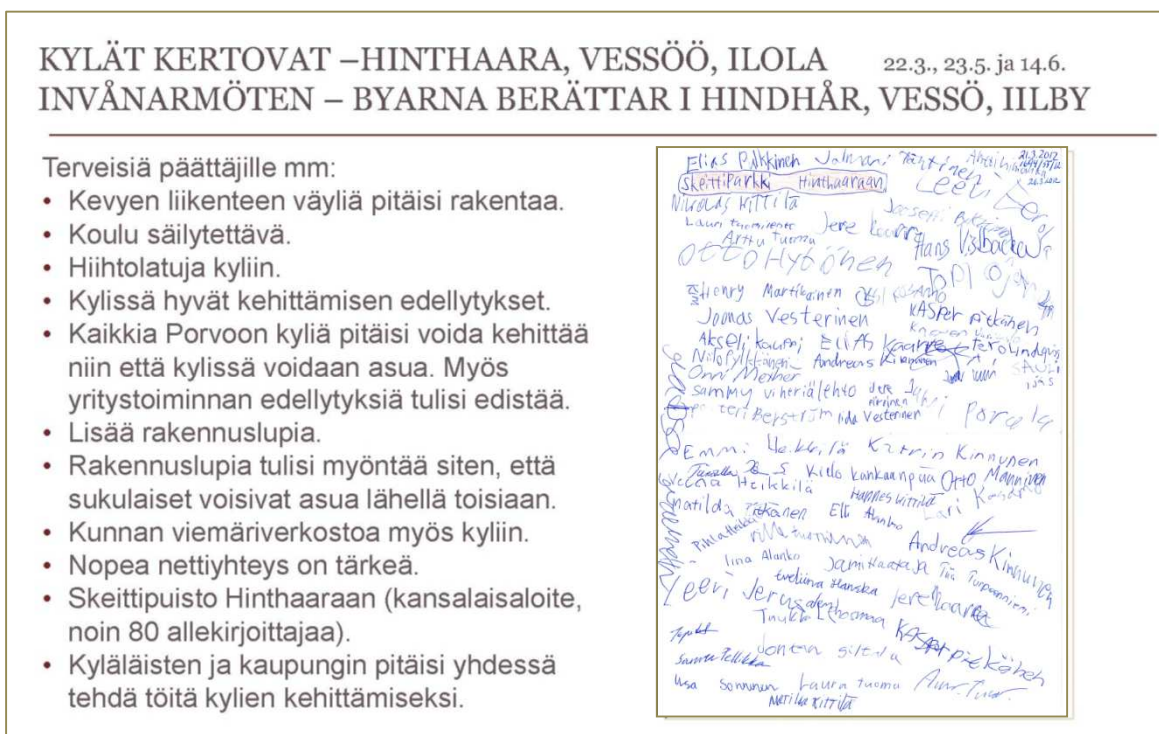 KYLÄT KERTOVAT –HINTHAARA, VESSÖÖ, ILOLA 22.3., 23.5. ja 14.6.
INVÅNARMÖTEN – BYARNA BERÄTTAR I HINDHÅR, VESSÖ, IILBY
Terveisiä päättäjille mm:
• Kevyen liikenteen väyliä pitäisi rakentaa.
• Koulu säilytettävä.
• Hiihtolatuja kyliin.
• Kylissä hyvät kehittämisen edellytykset.
• Kaikkia Porvoon kyliä pitäisi voida kehittää
niin että kylissä voidaan asua. Myös
yritystoiminnan edellytyksiä tulisi edistää.
• Lisää rakennuslupia.
• Rakennuslupia tulisi myöntää siten, että
sukulaiset voisivat asua lähellä toisiaan.
• Kunnan viemäriverkostoa myös kyliin.
• Nopea nettiyhteys on tärkeä.
• Skeittipuisto Hinthaaraan (kansalaisaloite,
noin 80 allekirjoittajaa).
• Kyläläisten ja kaupungin pitäisi yhdessä
tehdä töitä kylien kehittämiseksi.
Elias Pitkkinen Jalmari Tähtinen
Skeittiparkki Hinthaaraan
Leevi Eerola
Nikolas Kittilä
Jere Kaarre
Arttu Tuomu
Hans Vislbacka
Otto Hytönen
Topi Ojan
Henry Martikainen
Joonas Vesterinen
Kasper pitkänen
Akseli kauppi Elias Kaarre tero lindqvist
Andreas
Onni Meiner
sammy viheriälehto
Porola
Bergström Iida Vesterinen
Emmi Heikkilä Katrin Kinnunen
Kielo Kankaanpää Otto Manninen
Heikkilä Hannes Kittilä
matilda Pitkänen Elli Alanko Lari
Andreas Kinnunen
Iina Alanko Jami Haataja Tiia
Eveliina Hanska
Leevi Jerusalem Jere Kaarre
Tuukka Lehtomaa Kasper pitkänen
Joona siltala
Sonninen Laura Tuomu
Matilda Kittilä